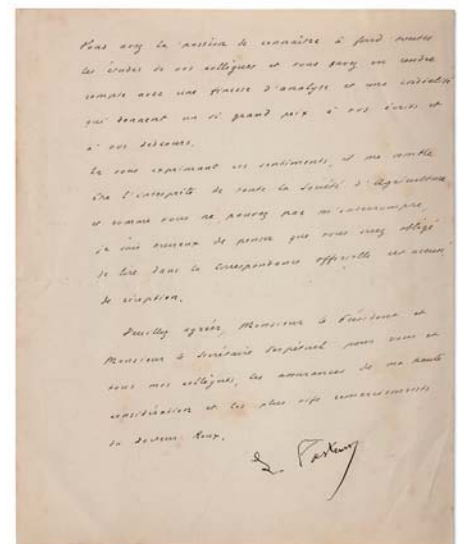 Vous avez la passion de connaître à fond toutes
les études de vos collègues et vous savez en rendre
compte avec une finesse d'analyse et une cordialité
qui donnent un si grand prix à vos écrits et
à vos discours.
En vous exprimant ces sentiments, il me semble
être l'interprète de toute la Société d'Agriculture
et comme vous ne pouvez pas m'interrompre,
je suis heureux de penser que vous serez obligé
de lire dans la correspondance officielle cet accusé
de réception.
Veuillez agréer, Monsieur le Président et
Monsieur le Secrétaire Perpétuel pour vous et
tous mes collègues, les assurances de ma haute
considération et les plus vifs remerciements
du docteur Roux.
L. Pasteur